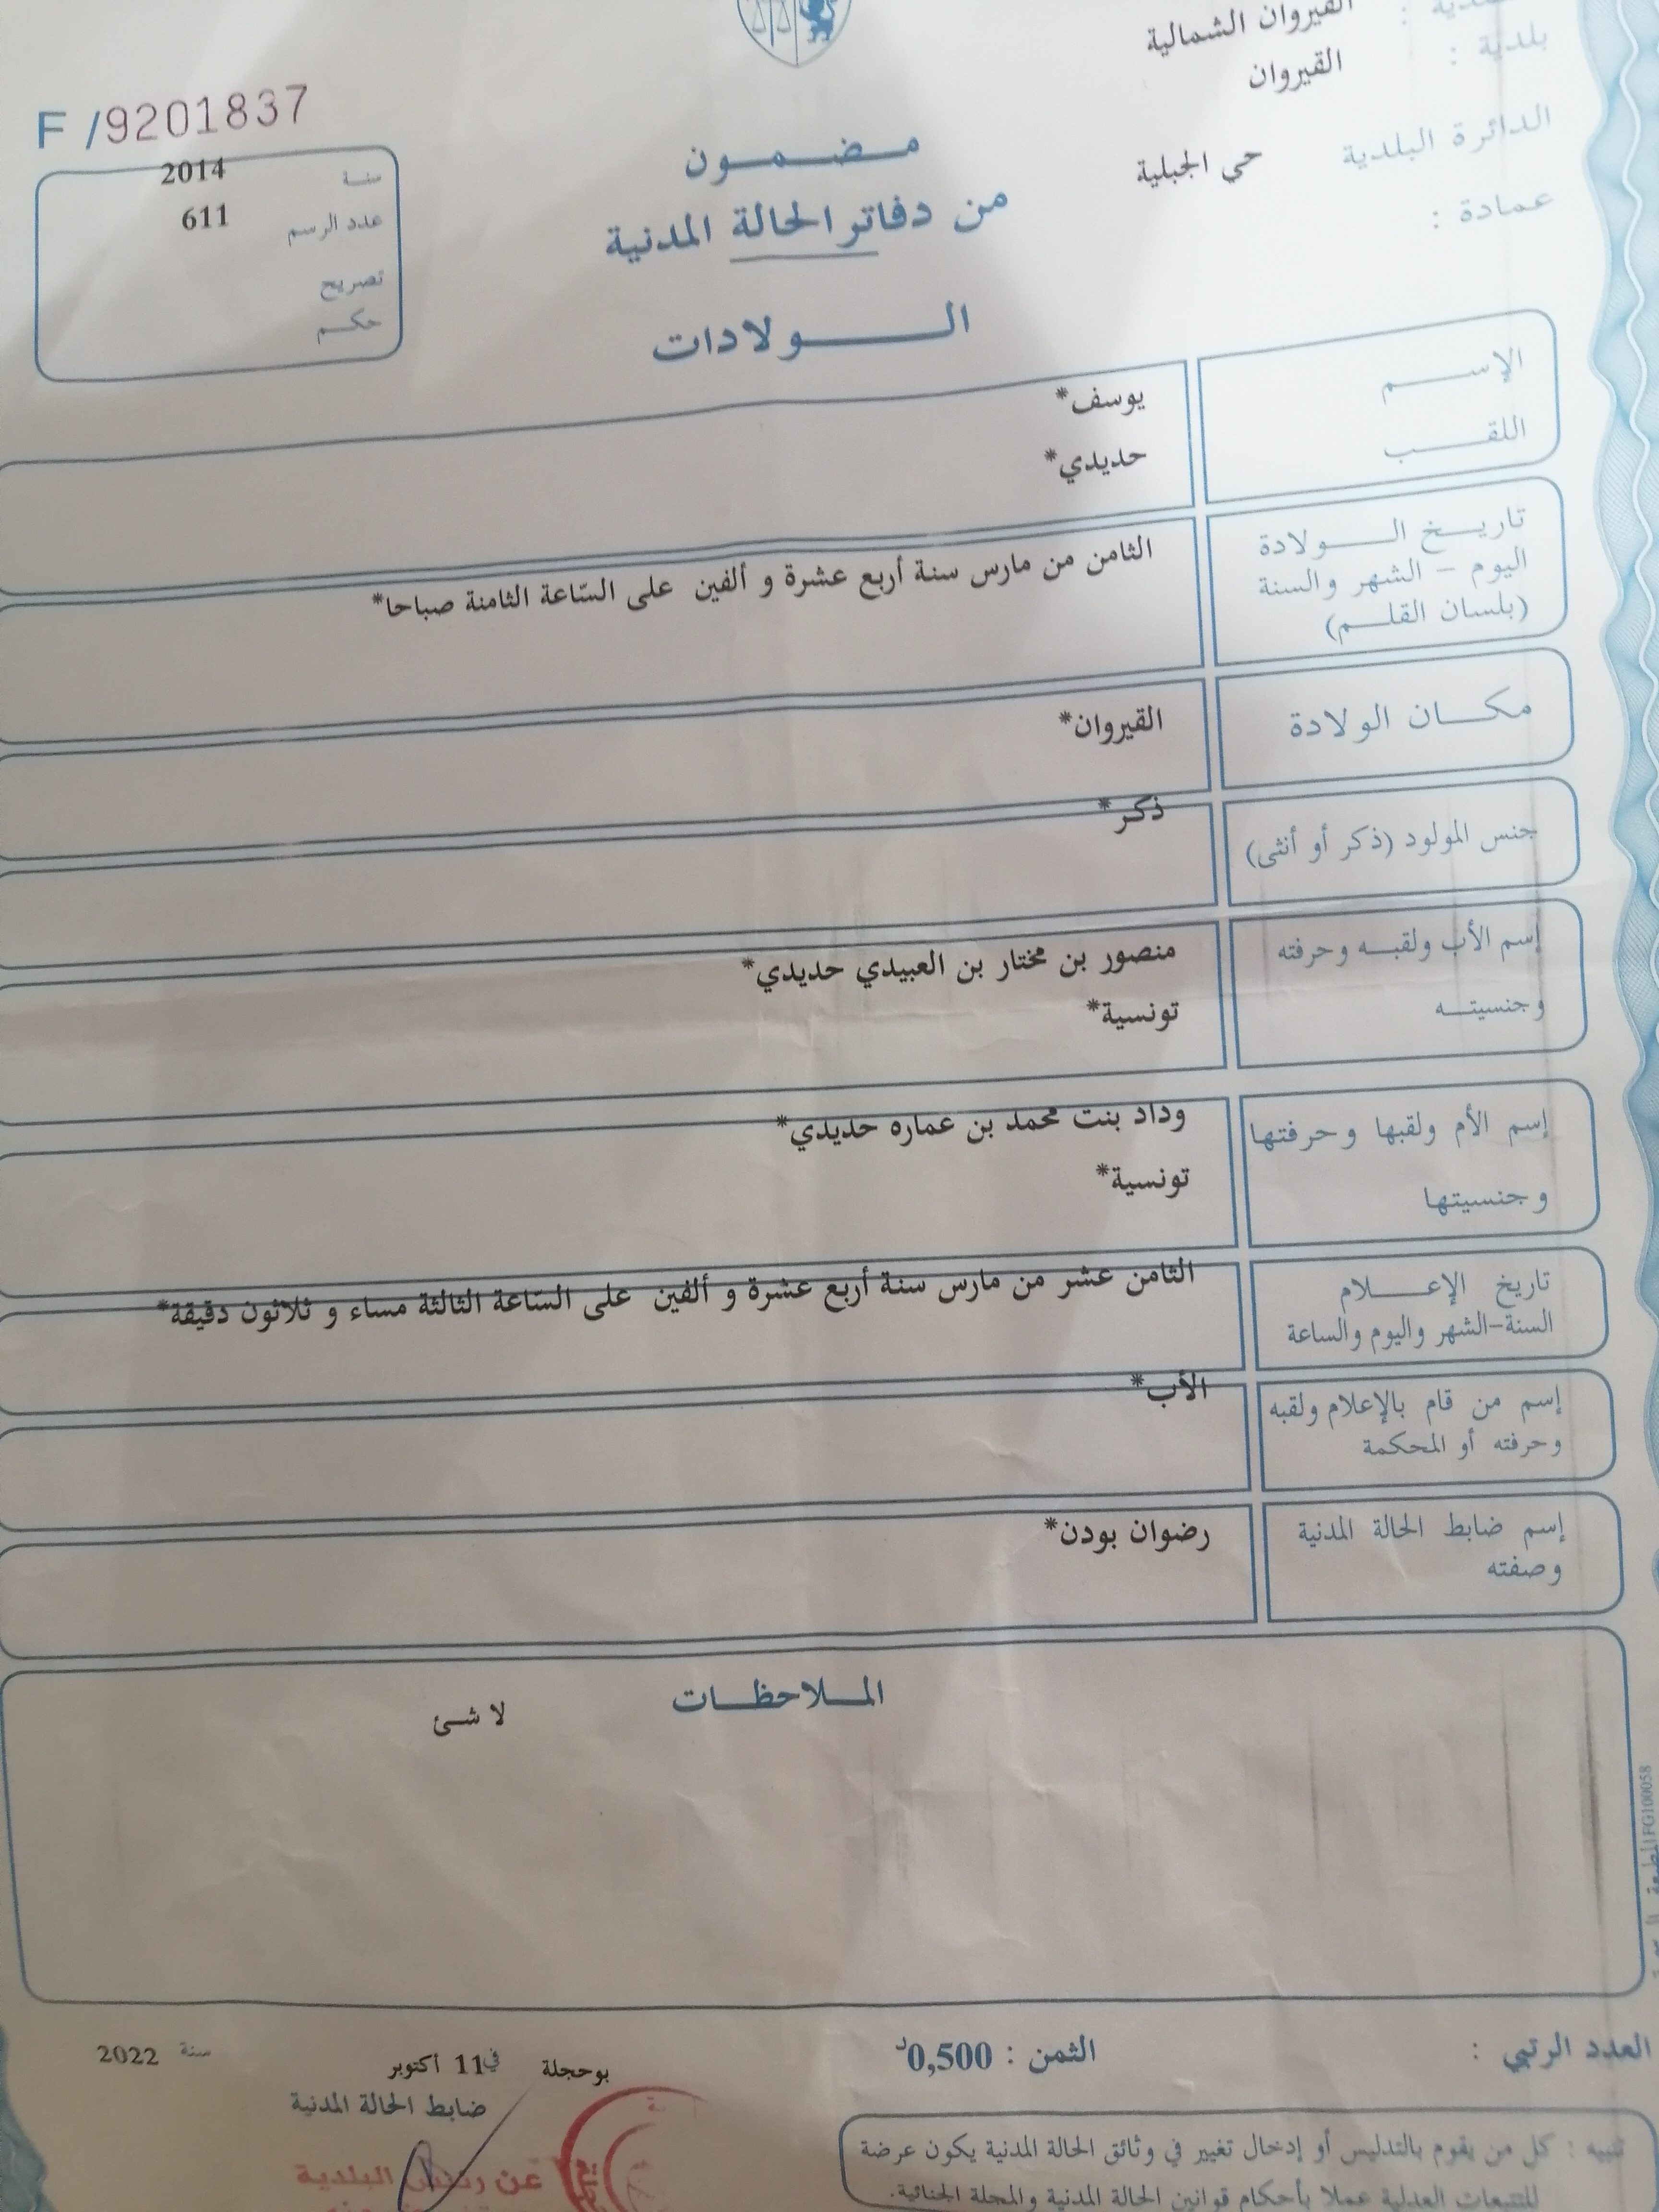 القيروان الشمالية
بلدية : القيروان
الدائرة البلدية حي الجبلية
عمادة :
F /9201837
سنة 2014
عدد الرسم 611
تصريح
حكم
مضمون
من دفاتر الحالة المدنية
الولادات
الإسم يوسف*
اللقب حديدي*
تاريخ الولادة
اليوم - الشهر والسنة
(بلسان القلم)
الثامن من مارس سنة أربع عشرة و ألفين على السّاعة الثامنة صباحا*
مكان الولادة القيروان*
جنس المولود (ذكر أو أنثى) ذكر*
إسم الأب ولقبه وحرفته منصور بن مختار بن العبيدي حديدي*
وجنسيته تونسية*
إسم الأم ولقبها وحرفتها وداد بنت محمد بن عماره حديدي*
وجنسيتها تونسية*
تاريخ الإعلام
السنة-الشهر واليوم والساعة
الثامن عشر من مارس سنة أربع عشرة و ألفين على السّاعة الثالثة مساء و ثلاثون دقيقة*
إسم من قام بالإعلام ولقبه
وحرفته أو المحكمة
الأب*
إسم ضابط الحالة المدنية
وصفته
رضوان بودن*
الملاحظات
لا شئ
FG100058
العدد الرتبي :
الثمن : 0,500د
بوحجلة في 11 أكتوبر سنة 2022
ضابط الحالة المدنية
عن رئيس البلدية
تنبيه : كل من يقوم بالتدليس أو إدخال تغيير في وثائق الحالة المدنية يكون عرضة
للتتبعات العدلية عملا بأحكام قوانين الحالة المدنية والمجلة الجنائية.